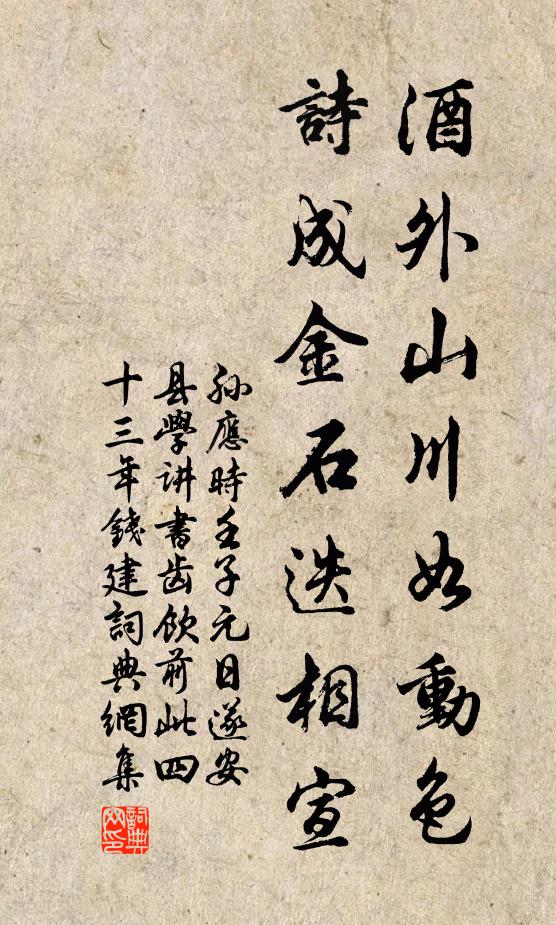 酒外山川如動色
詩成金石迭相宣
孙應時壬子元日遂安
县學讲書齿飲前此四
十三年錢建詞典網集
詞典网印